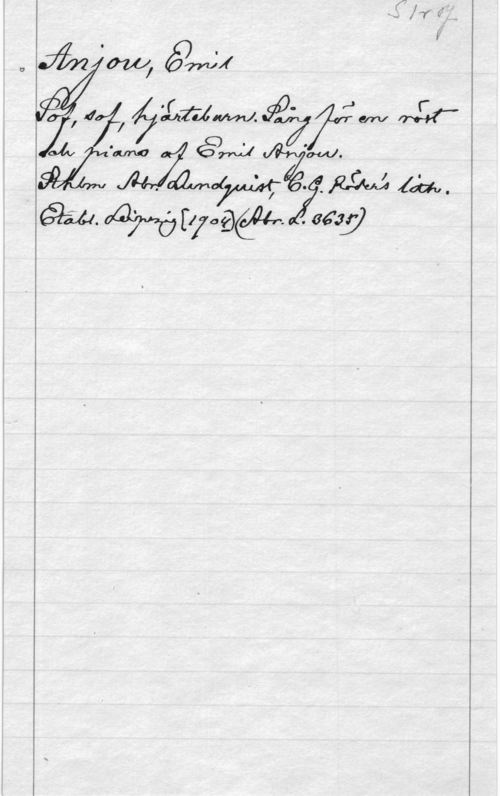 Anjou, Emil
Sof, sof, hjärtebarn. Sång för en röst
och piano af Emil Anjou.
Sthlm Abr. Lundquist, C.G. Röder's lith.
Etabl. Leipzig [1904] (Abr. L. 3635)